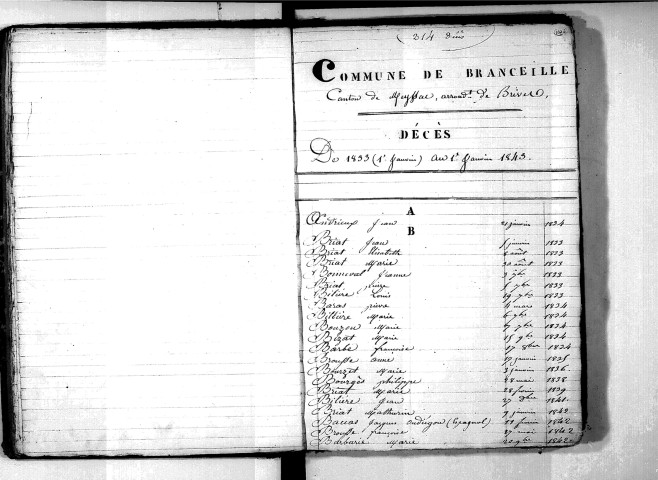 (314 décès)
COMMUNE DE BRANCEILLE
Canton de Meyssac, arrondt. de Brives.
DÉCÈS
De 1833 (1er Janvier) au 1er Janvier 1843.
A
Andrieux Jean 21 janvier 1834
B
Briat Jean janvier 1833
Briat Elisabeth août 1833
Briat Marie 20 août 1833
Bonneval Jeanne 2 7bre 1833
Briat 1833
Biliere Louis 19 1833
Baras pierre 4 mars 1834
Billiere Marie 6 1834
Bouzon Marie 1834
Bizat Marie 15 1834
Barbe françoise 17 1834
Brousse anne 17 janvier 1835
Bourzet Marie 3 janvier 1836
Bourgès philippe 28 mai 1838
Briat Marie 28 février 1839
Biliere Jean 27 1841
Briat Mathurin 9 janvier 1842
Jacques (Espagnol) février 1842
Brousse françoise 27 mai 1842
Barbarie Marie 20 1842